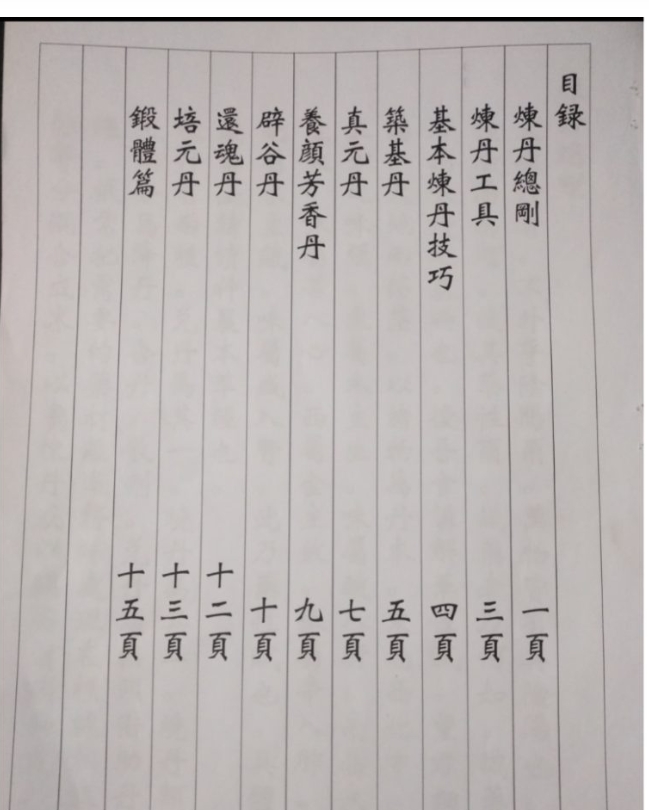 目录
煉丹總剛 一頁
煉丹工具 三頁
基本煉丹技巧 四頁
築基丹 五頁
真元丹 七頁
養顏芳香丹 九頁
辟谷丹 十頁
還魂丹 十二頁
培元丹 十三頁
鍛體篇 十五頁